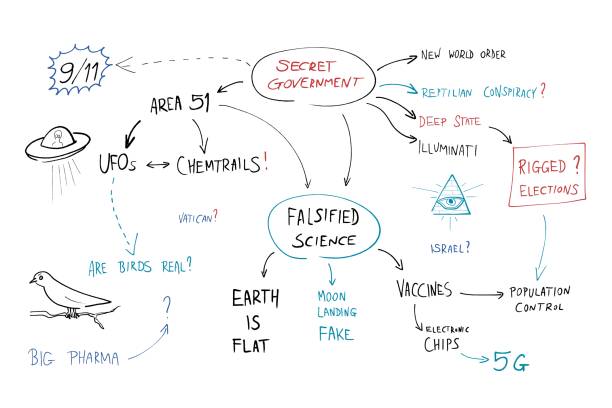 9/11
SECRET
GOVERNMENT
NEW WORLD ORDER
REPTILIAN CONSPIRACY?
DEEP STATE
ILLUMINATI
AREA 51
UFOs
CHEMTRAILS!
RIGGED ?
ELECTIONS
VATICAN?
FALSIFIED
SCIENCE
ISRAEL?
ARE BIRDS REAL?
EARTH
IS
FLAT
MOON
LANDING
FAKE
VACCINES
POPULATION
CONTROL
?
ELECTRONIC
CHIPS
5G
BIG PHARMA